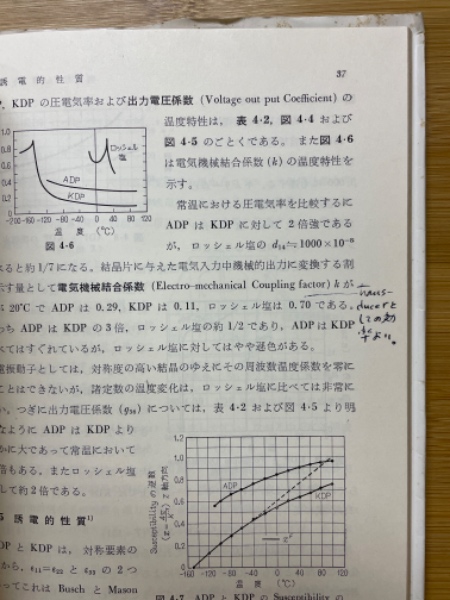 誘電的性質 37
KDP の圧電気率および出力電圧係数 (Voltage out put Coefficient) の
温度特性は, 表 4·2, 図 4·4 および
図 4·5 のごとくである。また図 4·6
は電気機械結合係数 (k) の温度特性を
示す。
常温における圧電気率を比較するに
ADP は KDP に対して 2 倍強である
が, ロッシェル塩の d₁₄≒1000×10⁻⁸
1.0
0.8
0.6
0.4
0.2
0
ロッシェル塩
ADP
KDP
-200 -160 -120 -80 -40 0 40 80 120
温度 (°C)
図 4-6
ると約 1/7 になる。結晶片に与えた電気入力中機械的出力に変換する割
す量として電気機械結合係数 (Electro-mechanical Coupling factor) k が
20°C で ADP は 0.29, KDP は 0.11, ロッシェル塩は 0.70 である。
ち ADP は KDP の 3 倍, ロッシェル塩の約 1/2 であり, ADP は KDP
べてはすぐれているが, ロッシェル塩に対してはやや遜色がある。
trans-
ducer と
しての効
電振動子としては, 対称度の高い結晶のゆえにその周波数温度係数を零に
ことはできないが, 諸定数の温度変化は, ロッシェル塩に比べては非常に
い。つぎに出力電圧係数 (g₃₆) については, 表 4·2 および図 4·5 より明
なように ADP は KDP より
かに大であって常温において
倍もある。またロッシェル塩
して約 2 倍である。
誘電的性質¹⁾
DP と KDP は, 対称要素の
から, ε₁₁=ε₂₂ と ε₃₃ の 2 つ
ってこれは Busch と Mason
1.2
1.0
0.8
0.6
0.4
0.2
0
Susceptibility の逆数
ADP
KDP
-160 -120 -80 -40 0 40 80 120
温度 (°C)
図 4-7 ADP と KDP の Susceptibility の